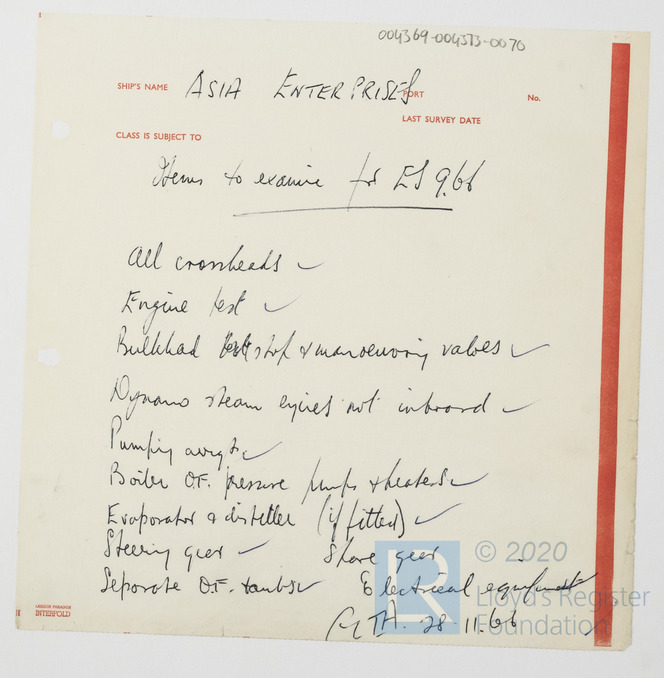 004369-004373-0070
SHIP'S NAME ASIA ENTERPRISES PORT No.
LAST SURVEY DATE
CLASS IS SUBJECT TO
Items to examine for ES 9.66
All crossheads ✓
Engine test ✓
Bulkhead stop & manoeuvring valves ✓
Dynamo steam engines not inboard ✓
Pumping ✓
Boiler O.F. pressure pumps & heaters ✓
Evaporator & distiller (if fitted) ✓
Steering gear ✓ Spare gear
Separate O.F. tanks ✓ Electrical equipment
28.11.66
LAMSON PARAGON
INTERFOLD
© 2020
Lloyd's Register
Foundation